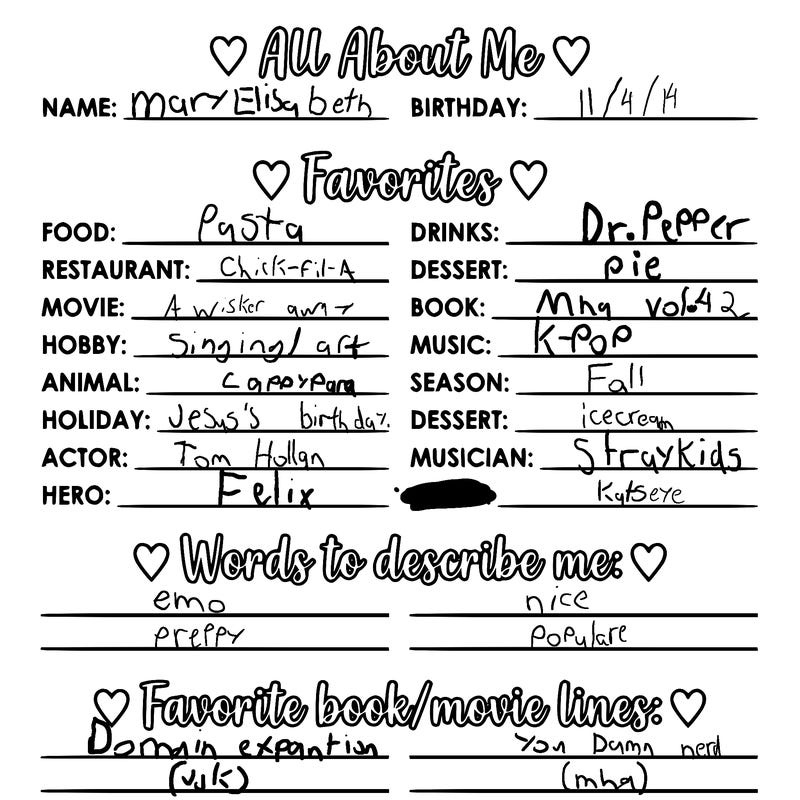 All About Me
NAME: MaryElisabeth BIRTHDAY: 11/4/14
Favorites
FOOD: Pasta DRINKS: Dr. Pepper
RESTAURANT: Chick-Fil-A DESSERT: pie
MOVIE: A wisker away BOOK: Mha vol.42
HOBBY: Singing/art MUSIC: K-POP
ANIMAL: cappypara SEASON: Fall
HOLIDAY: Jesus's birthday. DESSERT: icecream
ACTOR: Tom Hollan MUSICIAN: StrayKids
HERO: Felix Katseye
Words to describe me:
emo nice
preppy populare
Favorite book/movie lines:
Domain expantion You Damn nerd
(JJK) (mha)